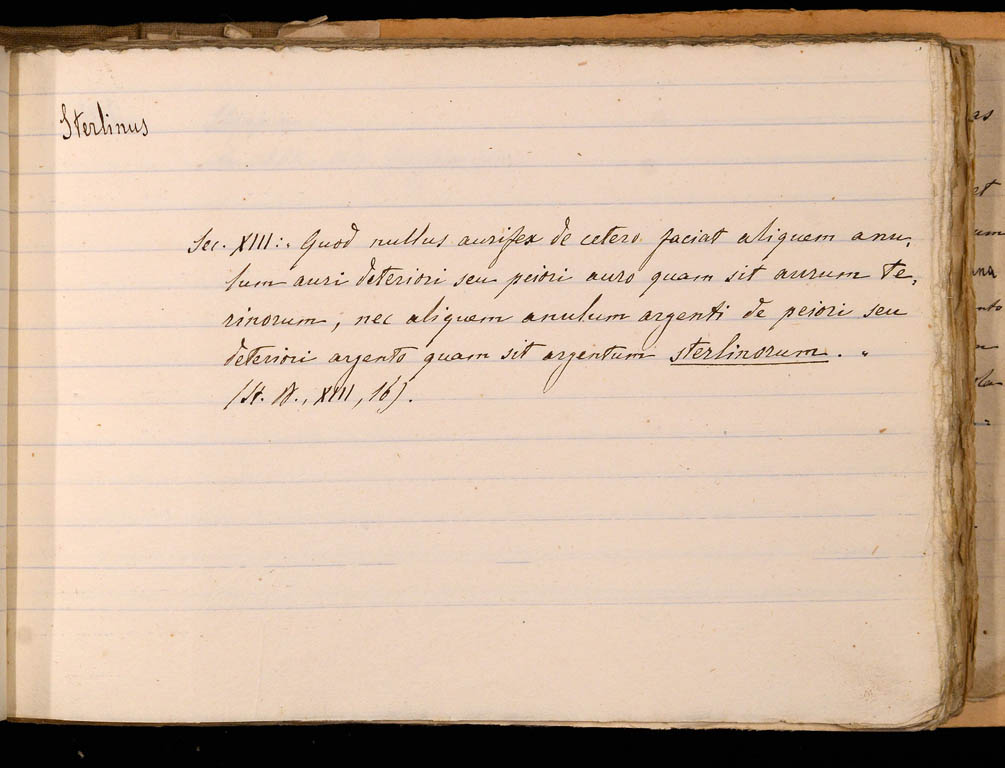 Sterlinus
Sec. XIII: „ Quod nullus aurifex de cetero faciat aliquem anu,
lum auri deteriori seu peiori auro quam sit aurum te,
rinorum, nec aliquem anulum argenti de peiori seu
deteriori argento quam sit argentum sterlinorum. „
(St. D., XIII, 16).
as
et
um
ana
nto
m
la